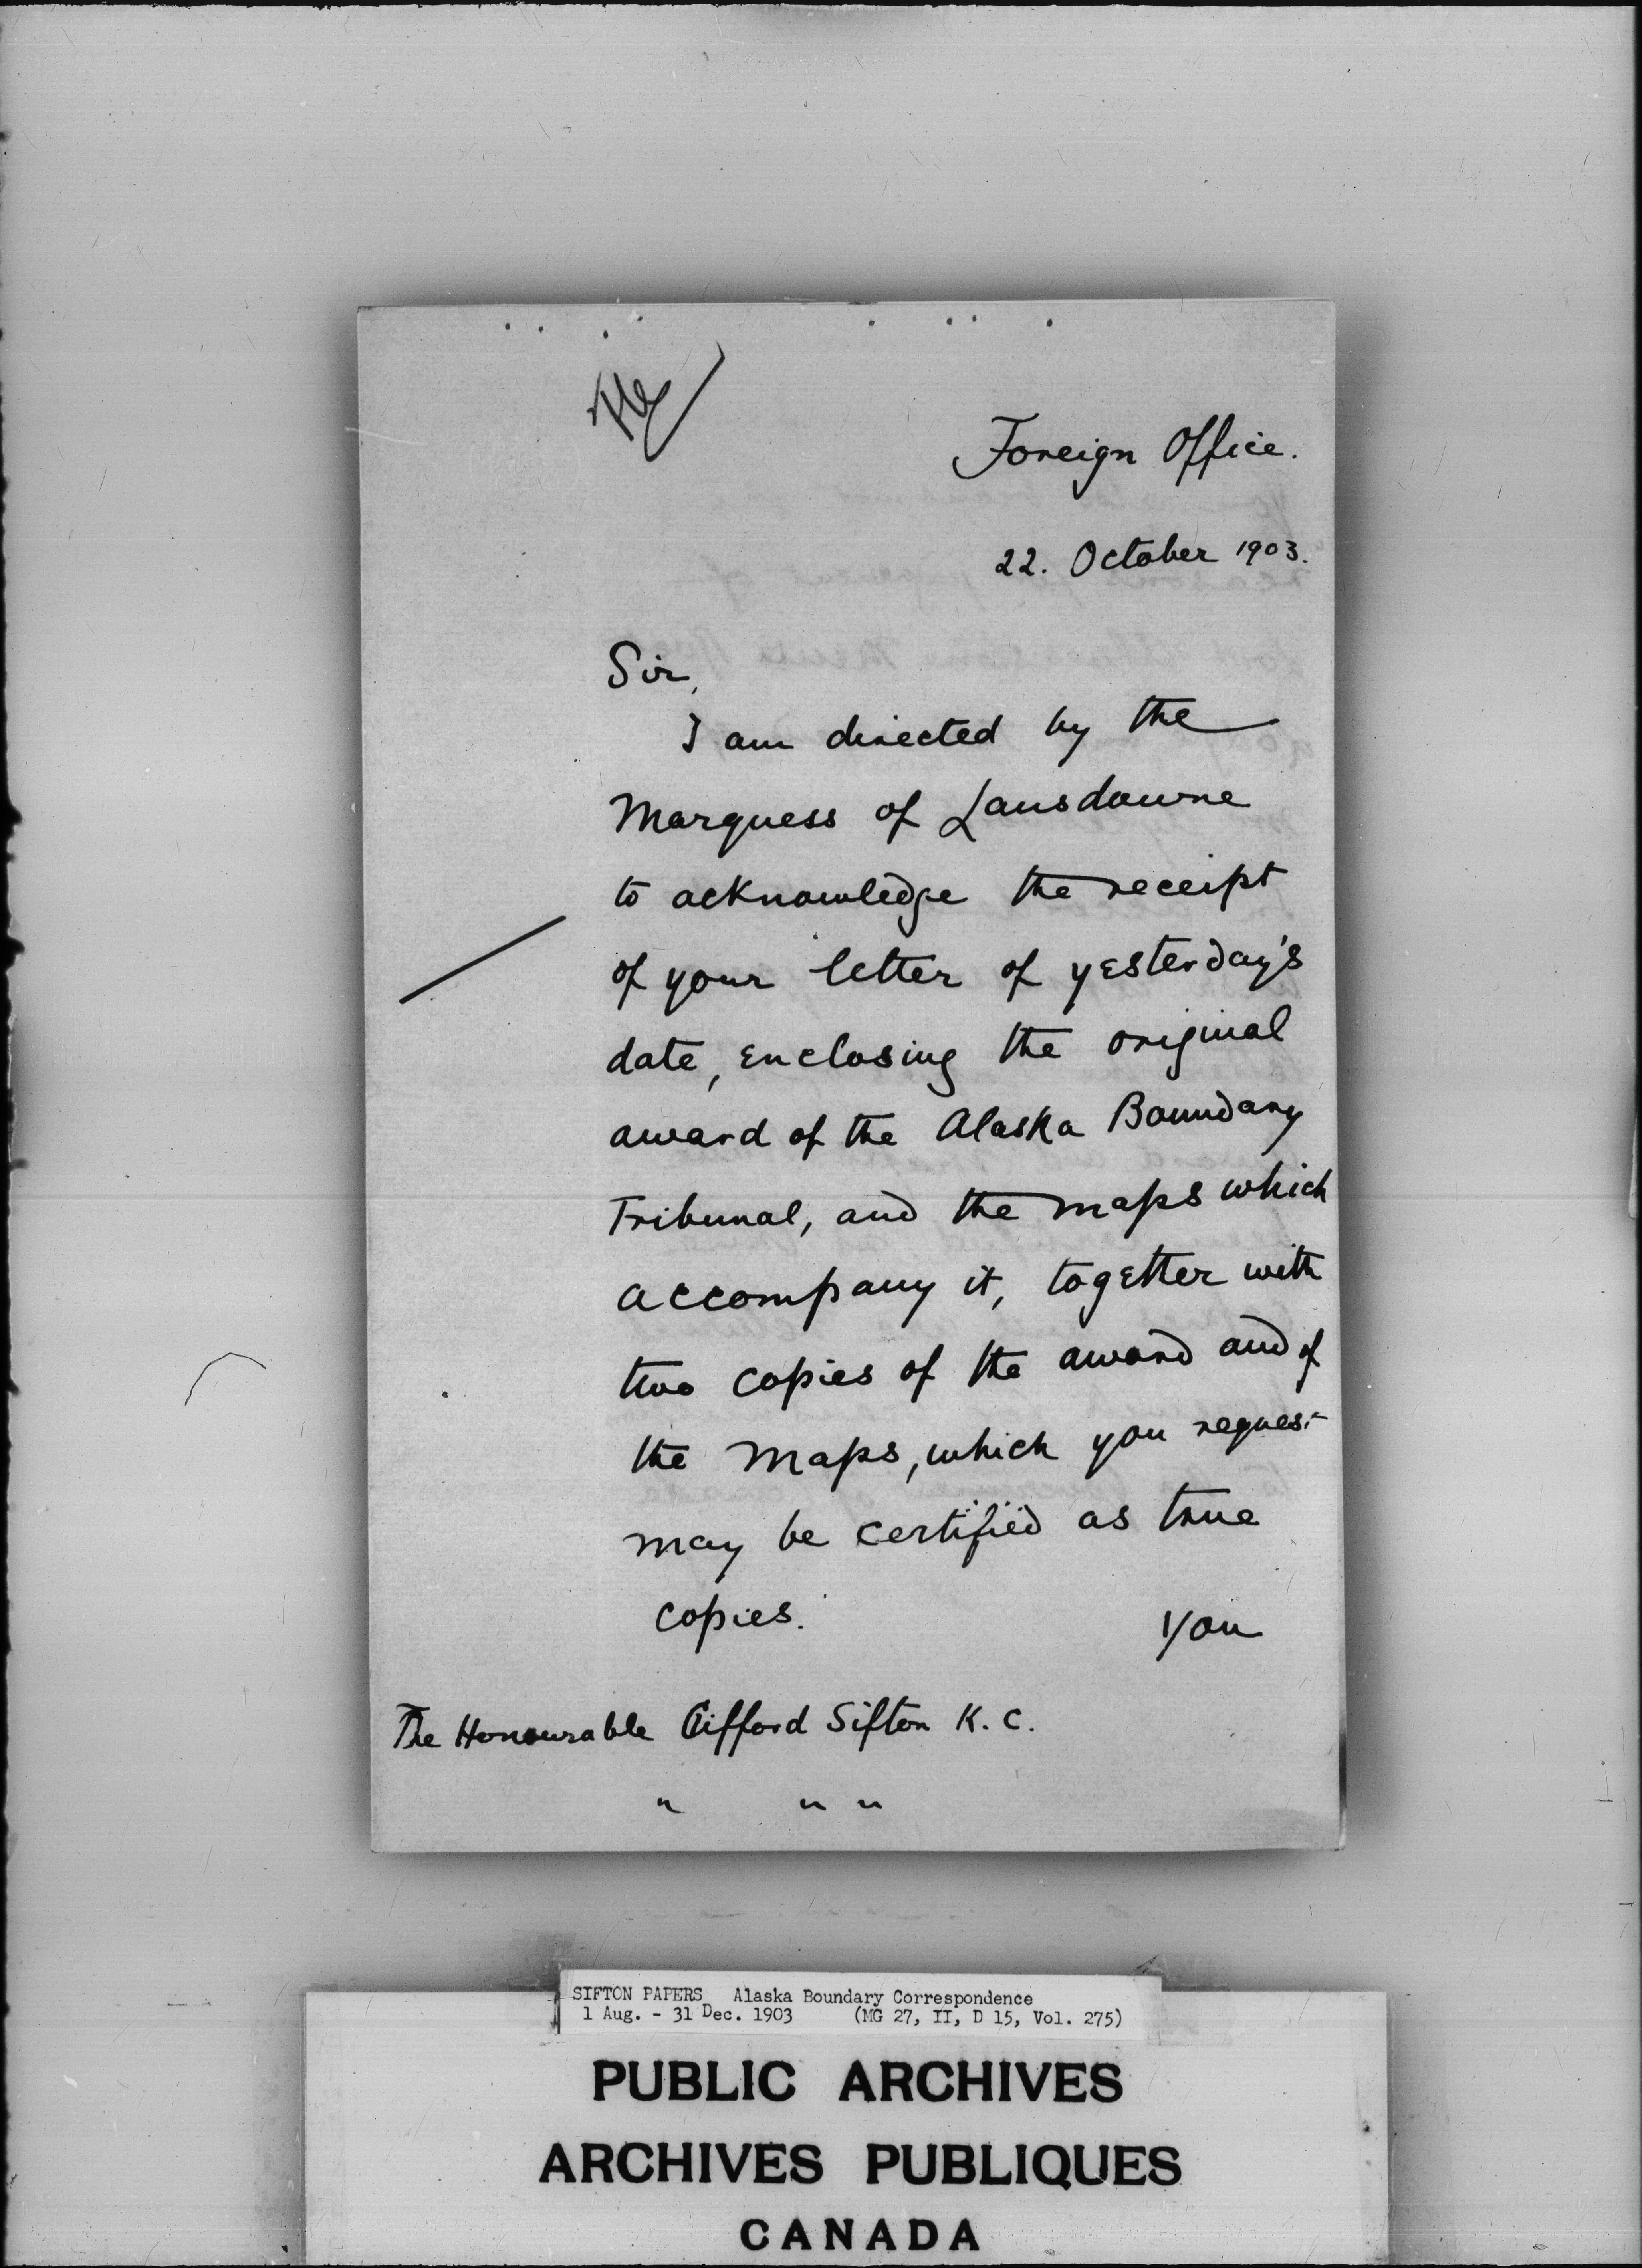 Foreign Office.
22. October 1903.
Sir,
I am directed by the
Marquess of Lansdowne
to acknowledge the receipt
of your letter of yesterday's
date, enclosing the original
award of the Alaska Boundary
Tribunal, and the maps which
accompany it, together with
two copies of the award and of
the maps, which you request
may be certified as true
copies.
You
The Honourable Clifford Sifton K. C.
" " "
SIFTON PAPERS Alaska Boundary Correspondence
1 Aug. - 31 Dec. 1903 (MG 27, II, D 15, Vol. 275)
PUBLIC ARCHIVES
ARCHIVES PUBLIQUES
CANADA